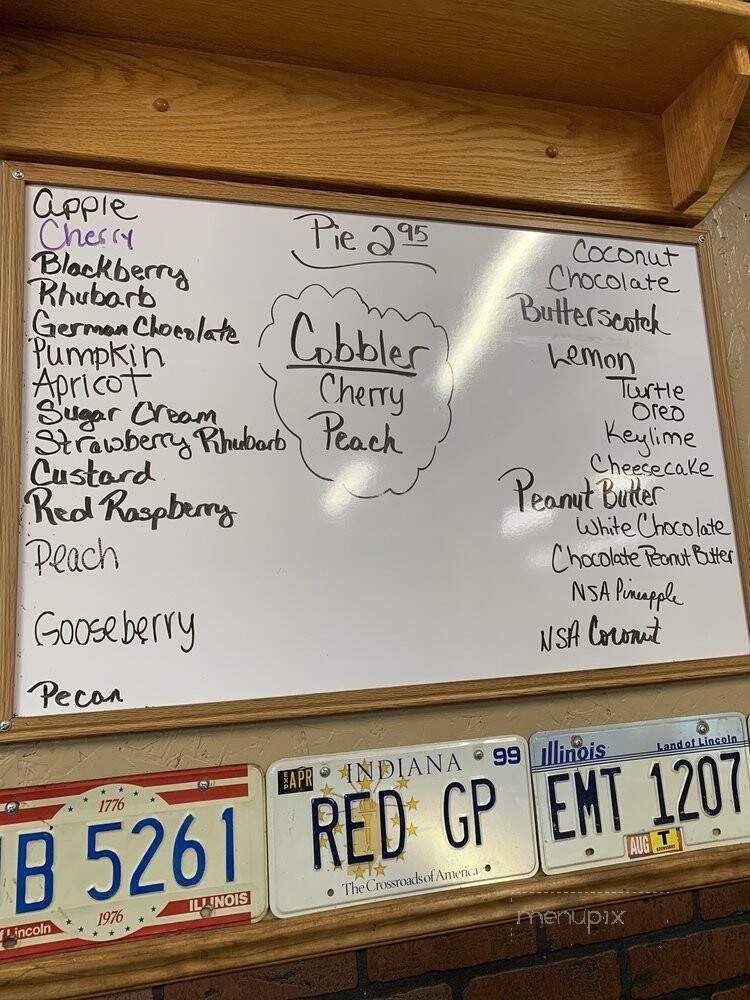 Apple
Cherry
Blackberry
Rhubarb
German Chocolate
Pumpkin
Apricot
Sugar Cream
Strawberry Rhubarb
Custard
Red Raspberry
Peach
Gooseberry
Pecan
Pie 2.95
Cobbler
Cherry
Peach
Coconut
Chocolate
Butterscotch
Lemon
Turtle
Oreo
Keylime
Cheesecake
Peanut Butter
White Chocolate
Chocolate Peanut Butter
NSA Pineapple
NSA Coconut
1776
B 5261
f Lincoln
1976
ILLINOIS
EXP APR
INDIANA
99
RED GP
The Crossroads of America
Illinois
Land of Lincoln
EMT 1207
AUG
T
menupix